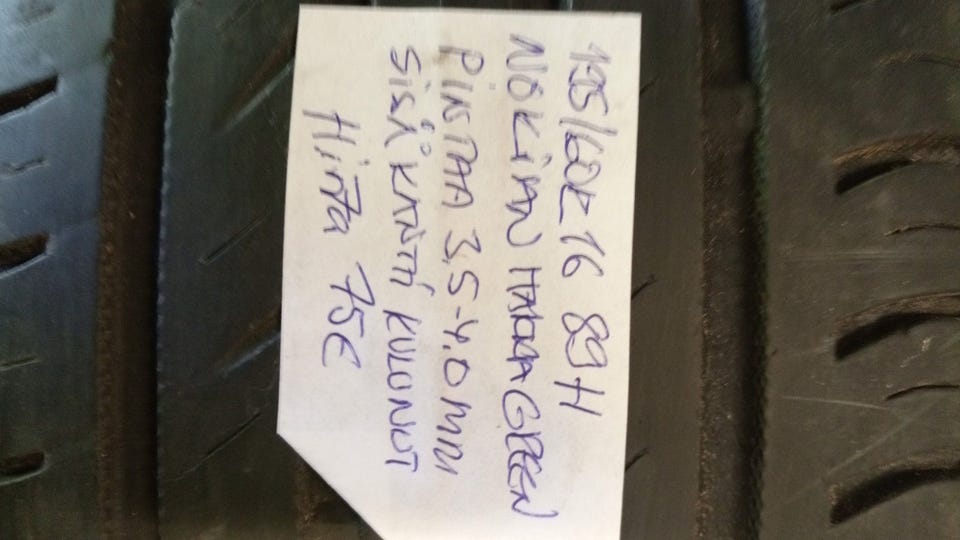 195/60R16 89H
NOKIAN HAKKA GREEN
PINTAA 3,5-4,0 MM
SISÄ KANTTI KULUNUT
Hinta 75€